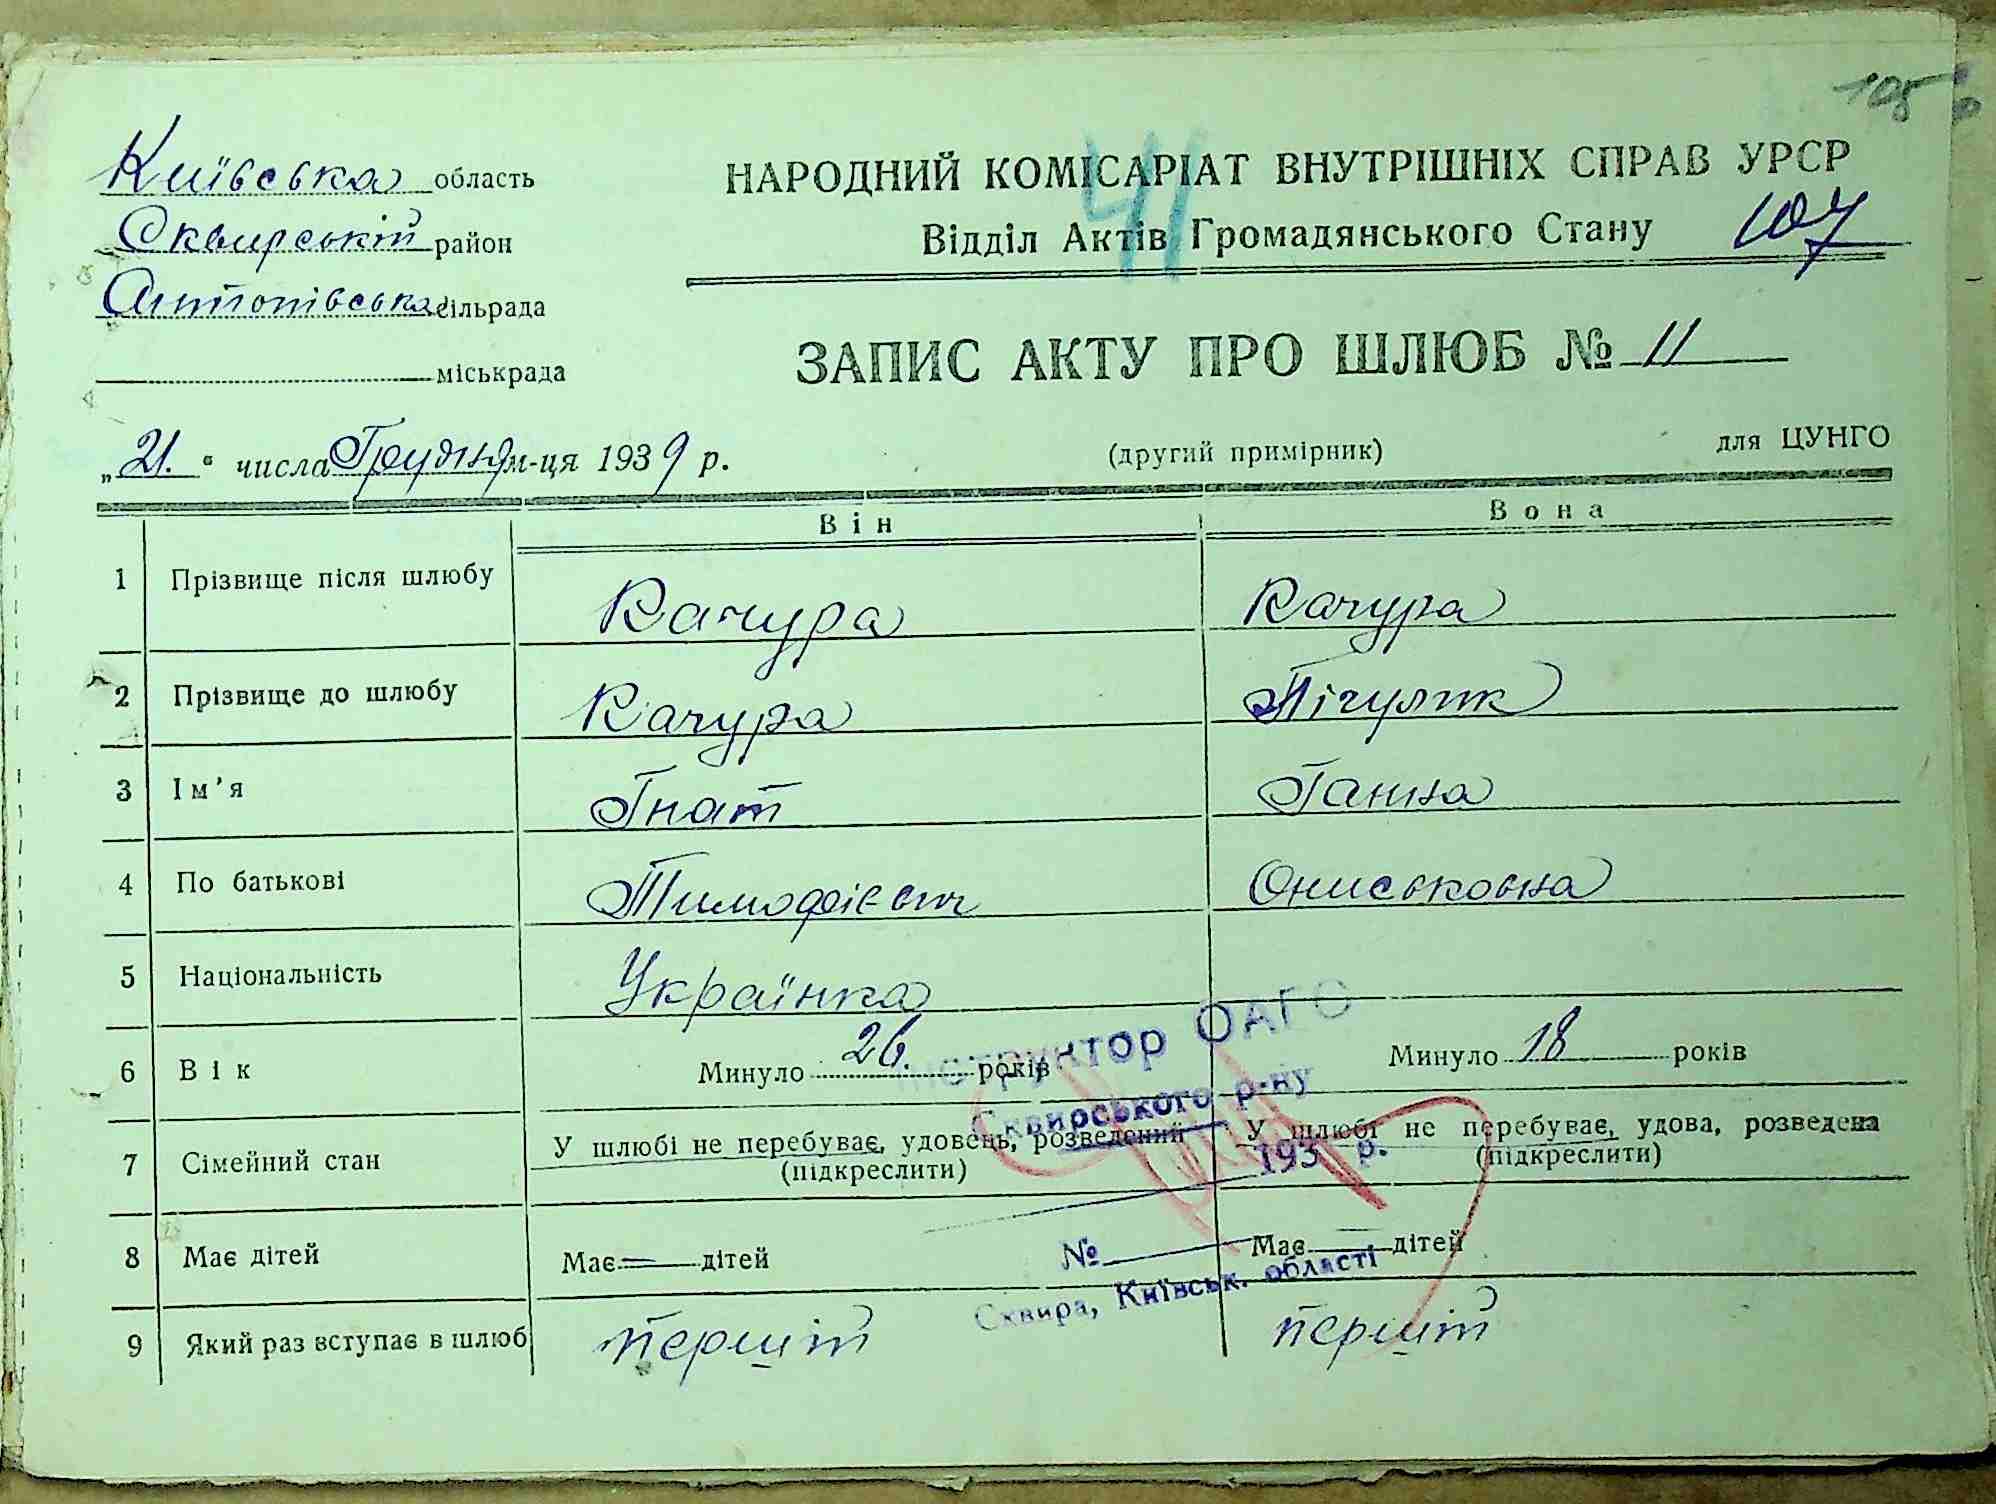 105
Київська область
НАРОДНИЙ КОМІСАРІАТ ВНУТРІШНІХ СПРАВ УРСР
41
Сквирській район
Відділ Актів Громадянського Стану
107
Антонівська сільрада
міськрада
ЗАПИС АКТУ ПРО ШЛЮБ № 11
„21." числа Грудня м-ця 1939 р.
(другий примірник)
для ЦУНГО
Він Вона
1 Прізвище після шлюбу Качура Качура
2 Прізвище до шлюбу Качура Пігулик
3 Ім'я Гнат Ганна
4 По батькові Тимофієвич Ониськовна
5 Національність Українка
6 Вік Минуло 26. років Минуло 18 років
Інструктор ОАГС
Сквирського р-ну
7 Сімейний стан У шлюбі не перебуває, удовець, розведений У шлюбі не перебуває, удова, розведена
(підкреслити) (підкреслити)
193 р.
8 Має дітей Має — дітей Має — дітей
№
Сквира, Київськ. області
9 Який раз вступає в шлюб перший перший